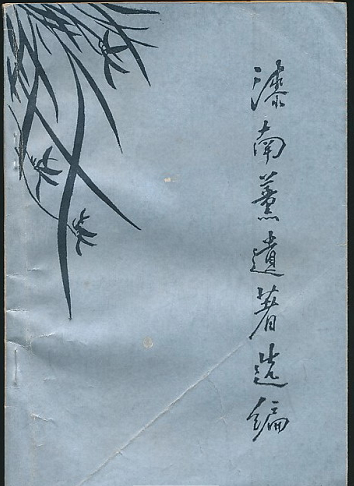 漆南薰遺著选编